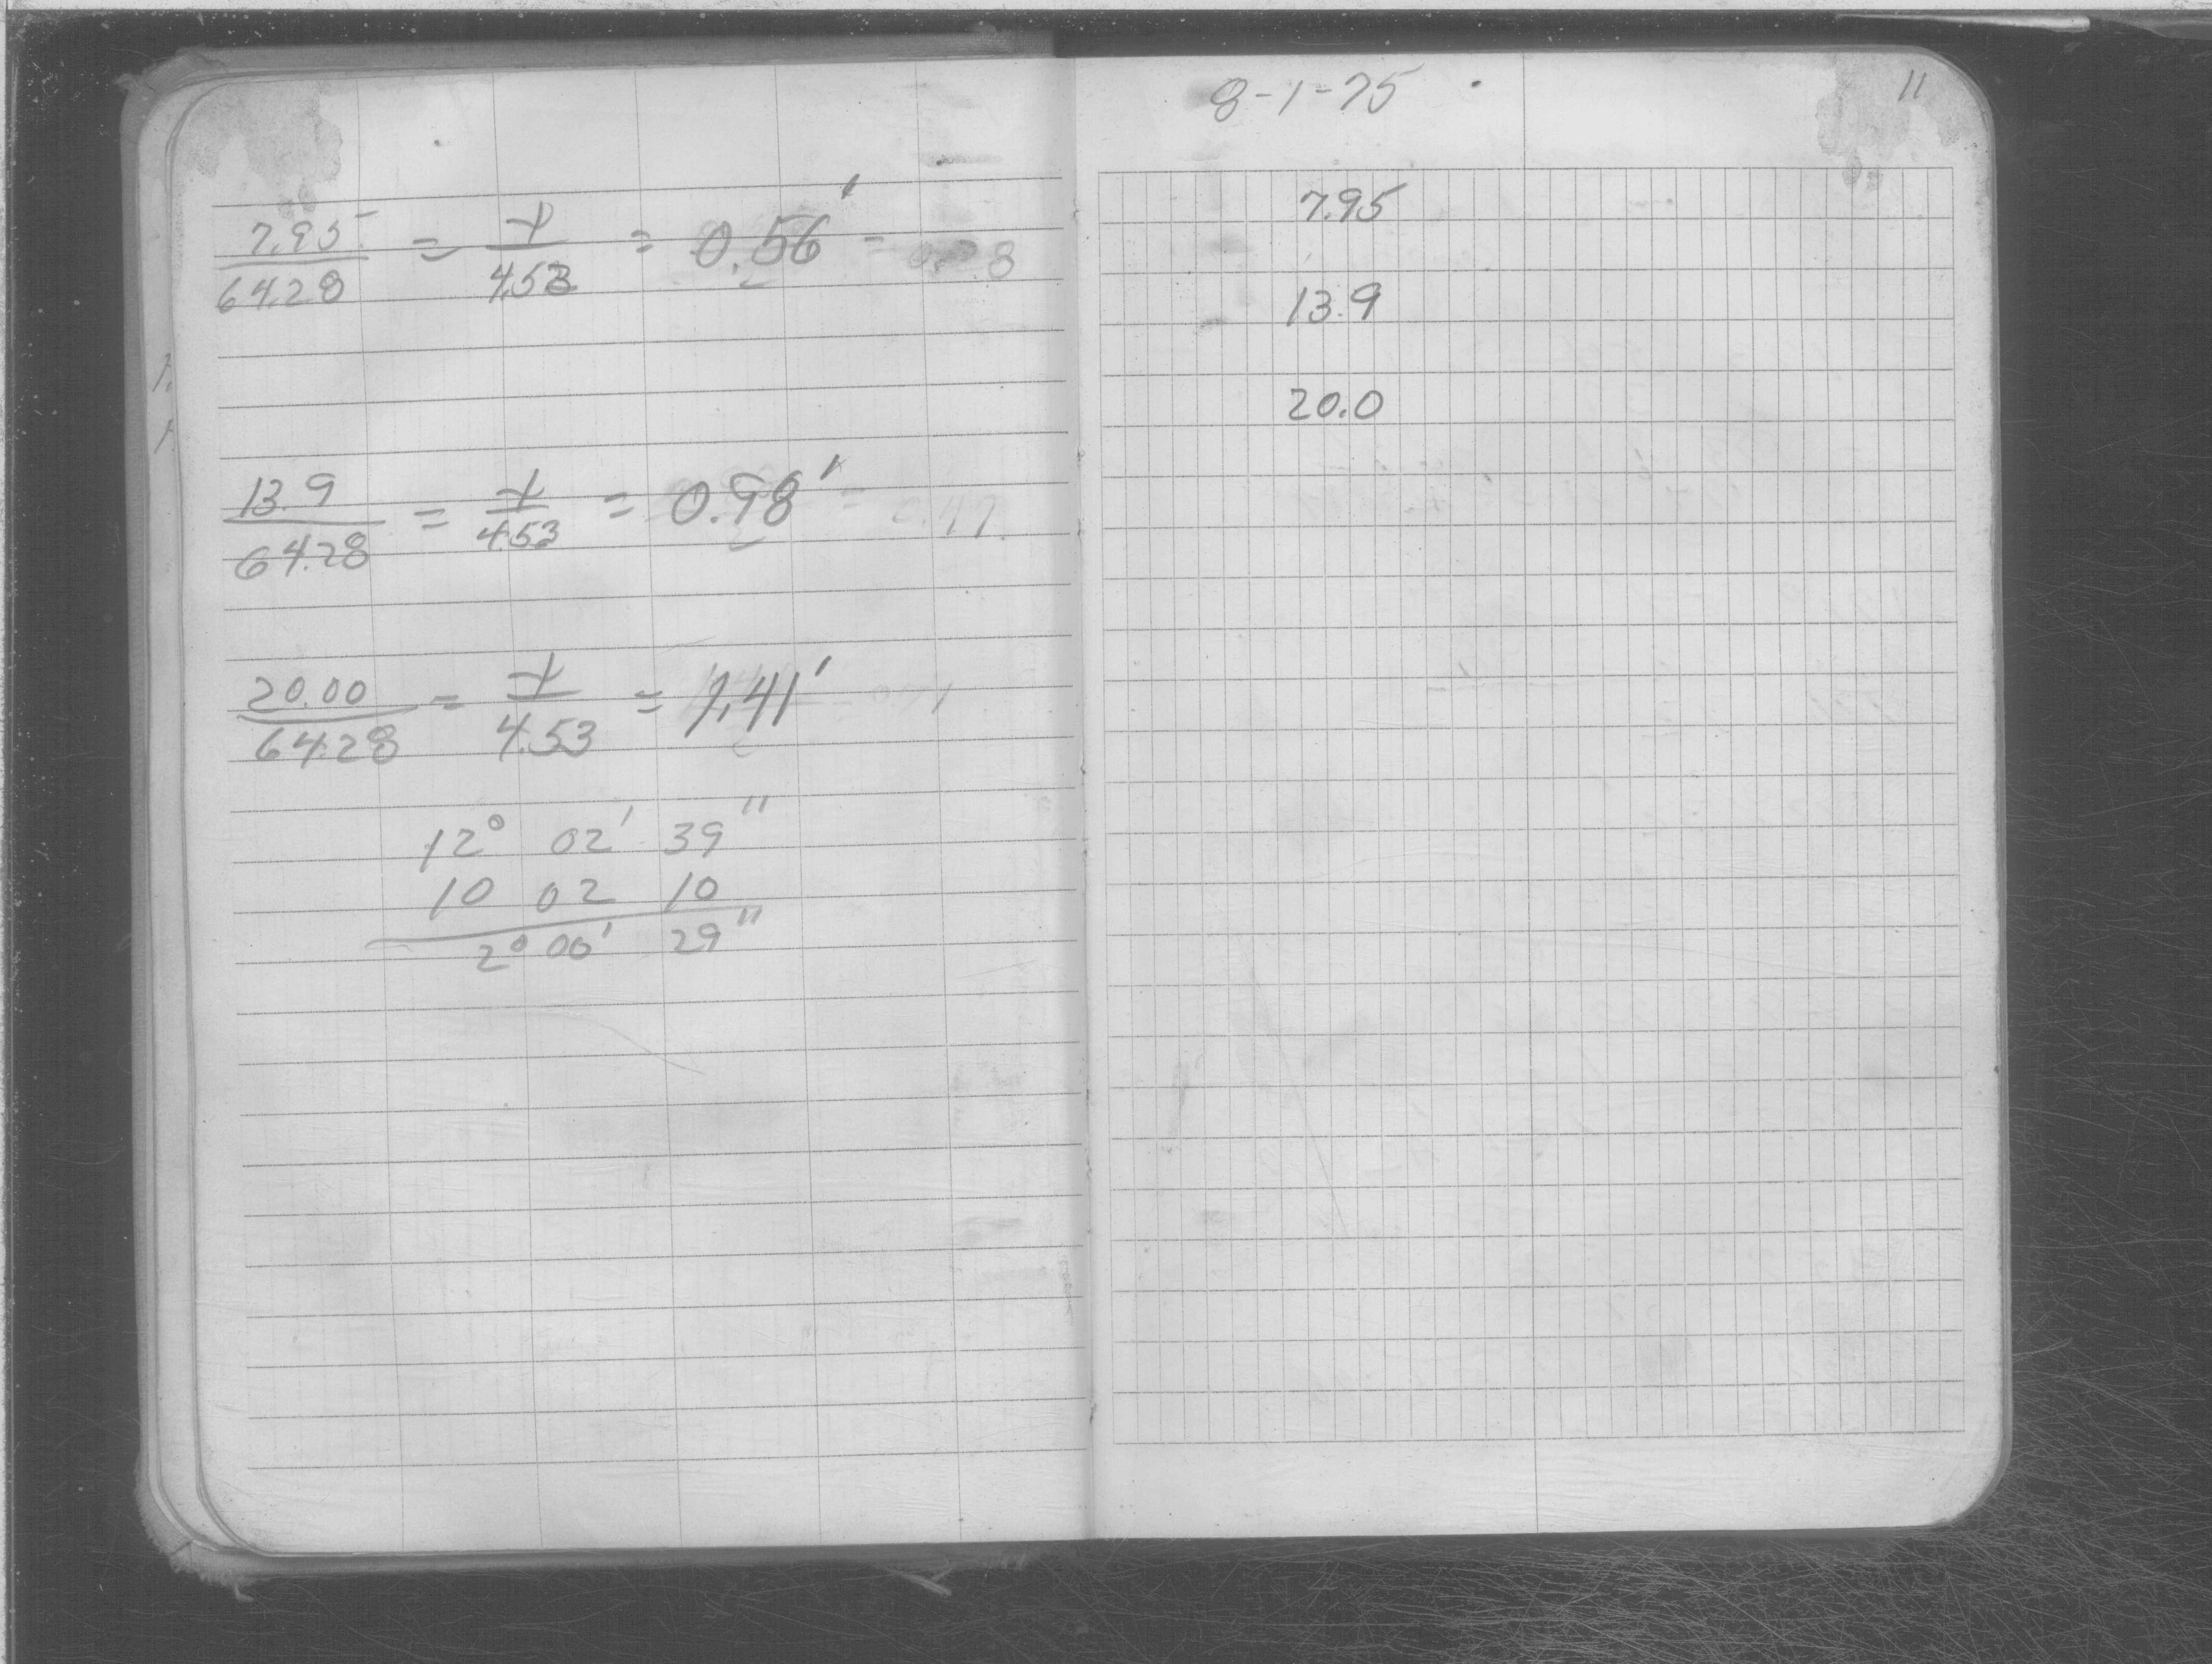 7.95 / 64.28 = Y / 4.53 = 0.56'
13.9 / 64.28 = Y / 4.53 = 0.98'
20.00 / 64.28 = Y / 4.53 = 1.41'
12° 02' 39"
10 02 10
2° 00' 29"
8-1-75
11
7.95
13.9
20.0